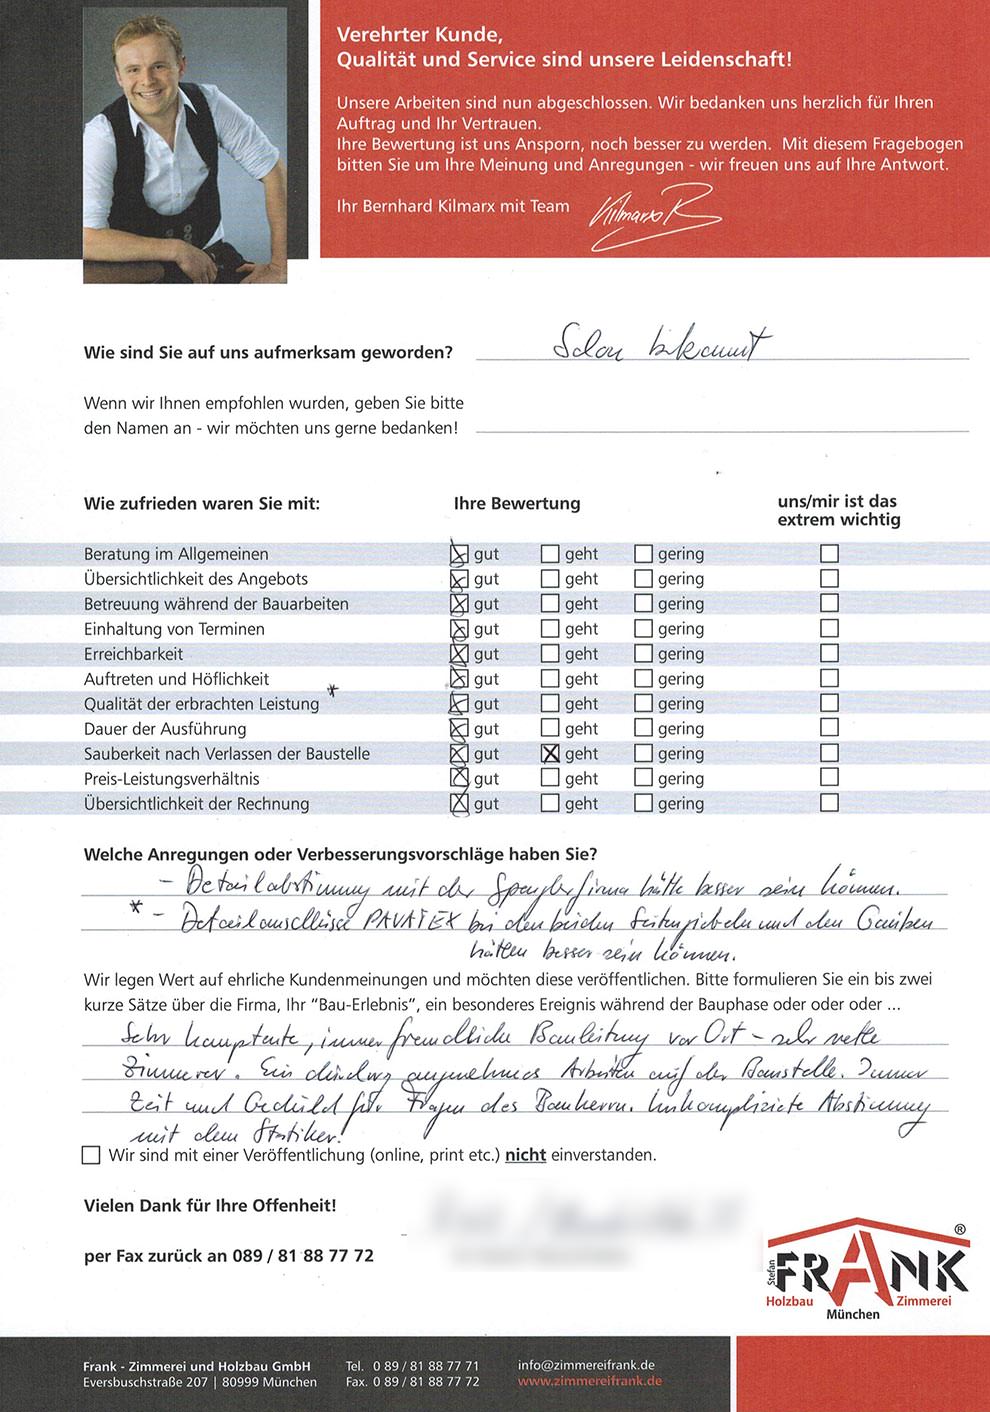 Verehrter Kunde,
Qualität und Service sind unsere Leidenschaft!
Unsere Arbeiten sind nun abgeschlossen. Wir bedanken uns herzlich für Ihren
Auftrag und Ihr Vertrauen.
Ihre Bewertung ist uns Ansporn, noch besser zu werden. Mit diesem Fragebogen
bitten Sie um Ihre Meinung und Anregungen - wir freuen uns auf Ihre Antwort.
Ihr Bernhard Kilmarx mit Team Kilmarx B
Wie sind Sie auf uns aufmerksam geworden? Schon bekannt
Wenn wir Ihnen empfohlen wurden, geben Sie bitte
den Namen an - wir möchten uns gerne bedanken!
Wie zufrieden waren Sie mit: Ihre Bewertung uns/mir ist das
extrem wichtig
Beratung im Allgemeinen gut geht gering
Übersichtlichkeit des Angebots gut geht gering
Betreuung während der Bauarbeiten gut geht gering
Einhaltung von Terminen gut geht gering
Erreichbarkeit gut geht gering
Auftreten und Höflichkeit gut geht gering
Qualität der erbrachten Leistung * gut geht gering
Dauer der Ausführung gut geht gering
Sauberkeit nach Verlassen der Baustelle gut geht gering
Preis-Leistungsverhältnis gut geht gering
Übersichtlichkeit der Rechnung gut geht gering
Welche Anregungen oder Verbesserungsvorschläge haben Sie?
- Detailabstimmung mit der Spenglerfirma hätte besser sein können.
* - Detailanschlüsse PAVATEX bei den beiden Seitengiebeln und den Gauben
hätten besser sein können.
Wir legen Wert auf ehrliche Kundenmeinungen und möchten diese veröffentlichen. Bitte formulieren Sie ein bis zwei
kurze Sätze über die Firma, Ihr "Bau-Erlebnis", ein besonderes Ereignis während der Bauphase oder oder oder ...
Sehr kompetente, immer freundliche Bauleitung vor Ort - sehr nette
Zimmerer. Ein durchweg angenehmes Arbeiten auf der Baustelle. Immer
Zeit und Geduld für Fragen des Bauherrn. Unkomplizierte Abstimmung
mit dem Statiker.
Wir sind mit einer Veröffentlichung (online, print etc.) nicht einverstanden.
Vielen Dank für Ihre Offenheit!
per Fax zurück an 089 / 81 88 77 72
Stefan FRANK ®
Holzbau Zimmerei
München
Frank - Zimmerei und Holzbau GmbH Tel. 0 89 / 81 88 77 71 info@zimmereifrank.de
Eversbuschstraße 207 | 80999 München Fax. 0 89 / 81 88 77 72 www.zimmereifrank.de